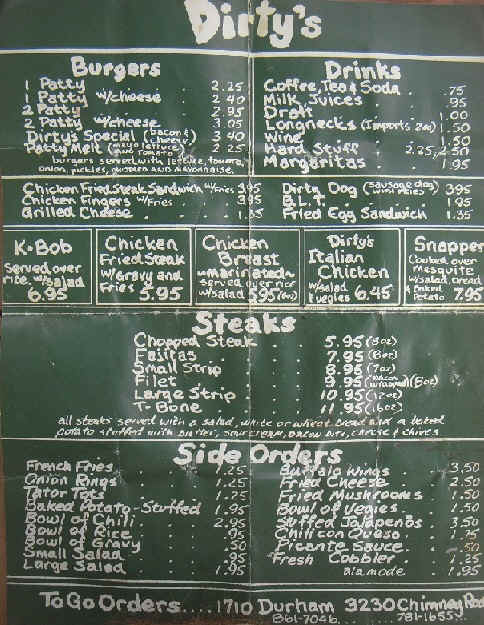 Dirty's
Burgers
1 Patty . . . 2.25
1 Patty w/cheese . . 2.40
2 Patty . . . 2.95
2 Patty w/cheese . . 3.05
Dirty's Special (bacon & cheese) 3.40
Patty Melt 2.25
burgers served with lettuce, tomato,
onion, pickles, mustard and mayonnaise.
Drinks
Coffee, Tea & Soda . .75
Milk, Juices . .95
Draft . . 1.00
Longnecks (Imports 2.00) 1.50
Wine . . 1.50
Hard Stuff 2.25,
Margaritas . . 1.95
Chicken Fried Steak Sandwich w/Fries 3.95
Chicken Fingers w/Fries . 3.95
Grilled Cheese . . . 1.35
Dirty Dog (sausage dog w/Fries) 3.95
B.L.T. . . 1.95
Fried Egg Sandwich 1.35
K-Bob
Served over
rice w/salad
6.95
Chicken
Fried Steak
w/Gravy and
Fries 5.95
Chicken
Breast
~marinated~
served over rice
w/salad 5.95 (6oz)
Dirty's
Italian
Chicken
w/salad
& vegies 6.45
Snapper
Cooked over
Mesquite
w/salad, bread
& Baked
Potato 7.95
Steaks
Chopped Steak . 5.95 (8oz)
Fajitas . . . 7.95 (8oz)
Small Strip . . 8.95 (7oz)
Filet . . . 9.95 (bacon wrapped) (8oz)
Large Strip . . 10.95 (12oz)
T-Bone . . . 11.95 (16oz)
all steaks served with a salad, white or wheat bread and a baked
potato stuffed with butter, sour cream, bacon bits, cheese & chives
Side Orders
French Fries . . . 1.25
Onion Rings . . . 1.25
Tator Tots . . . 1.25
Baked Potato-Stuffed 1.95
Bowl of Chili . . 2.95
Bowl of Rice . . .95
Bowl of Gravy . . .50
Small Salad . .
Large Salad . . . 1.95
Buffalo Wings . 3.50
Fried Cheese . 2.50
Fried Mushrooms 1.50
Bowl of Vegies . 1.50
Stuffed Jalapeños 3.50
Chili con Queso . 1.75
Picante Sauce . .50
Fresh Cobbler . 1.25
ala mode . 1.95
To Go Orders.... 1710 Durham 3230 Chimney Rock
861-7046 ........ 781-1655